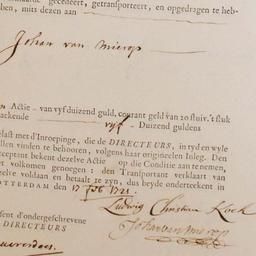 waarde gecedeert, getransporteert, en opgedragen te heb-
en, mits dezen aan
Johan van Mierop
een Actie van vyf duizend guld, courant geld van 20 stuiv.'t stuk
vyff Duizend guldens
elast met d'Inroepinge, die de DIRECTEURS, in tyd en wyle
ullen vinden te behooren, volgens haar origineelen Inleg. Den
cceptant bekent dezelve Actie op die Conditie aan te nemen,
et volkomen genoegen: den Transportant verklaart van
ezelve voldaan en betaalt te zyn, dus beyde onderteekent in
OTTERDAM den 17 1721.
Ludwig Christian Koch
Johan van Mierop
sent d'ondergeschrevene
DIRECTEURS